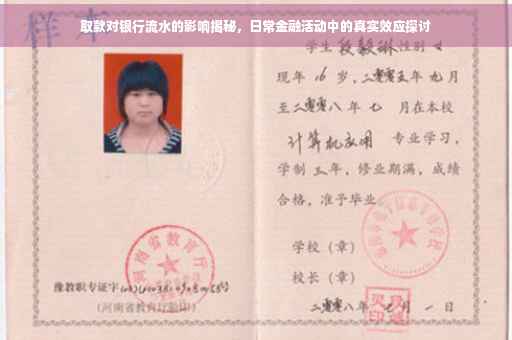 取款对银行流水的影响揭秘，日常金融活动中的真实效应探讨
样本
学生段毅琳性别女
现年16岁，二零零五年九月
至二零零八年七月在本校
计算机应用 专业学习，
学制三年，修业期满，成绩
合格，准予毕业。
学校（章）
校长（章）
二零零八年七月一日
河南省教育厅
豫教职专证字
（河南省教育厅验印）